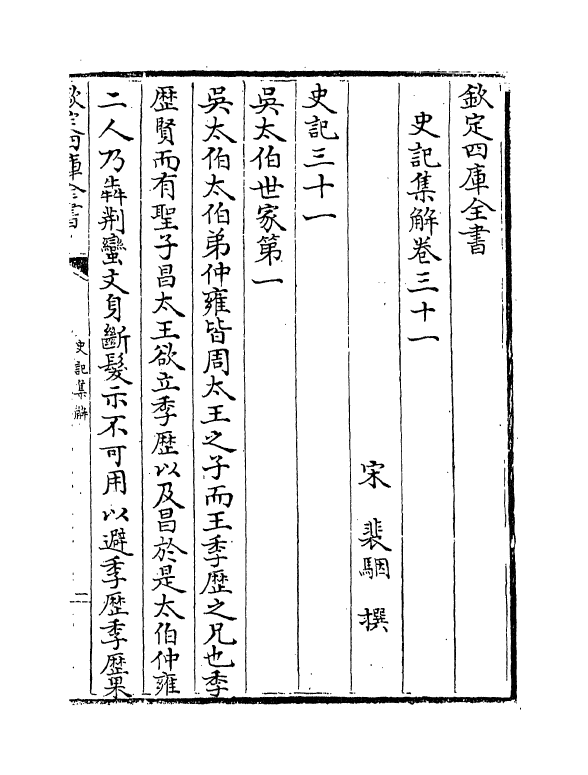 欽定四庫全書
史記集解卷三十一
宋 裴駰 撰
史記三十一
吳太伯世家第一
吳太伯太伯弟仲雍皆周太王之子而王季歴之兄也季
歴賢而有聖子昌太王欲立季歴以及昌於是太伯仲雍
二人乃犇荆蠻文身斷髮示不可用以避季歴季歴果
欽定四庫全書
史記集解